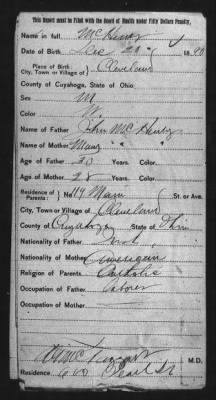 This Report must be Filed with the Board of Health under Fifty Dollars Penalty.
Name in full, McHenry
Date of Birth, Dec 29 1890
Place of Birth: Cleveland
City, Town or Village of
County of Cuyahoga, State of Ohio
Sex M
Color W.
Name of Father John McHenry
Name of Mother Mary " "
Age of Father 30 Years. Color.
Age of Mother 28 Years. Color.
Residence of Parents: No. 119 Main St. or Ave.
City, Town or Village of Cleveland
County of Cuyahoga State of Ohio
Nationality of Father
Nationality of Mother American
Religion of Parents Catholic
Occupation of Father Laborer
Occupation of Mother
M.D.
Residence 660 Pearl St